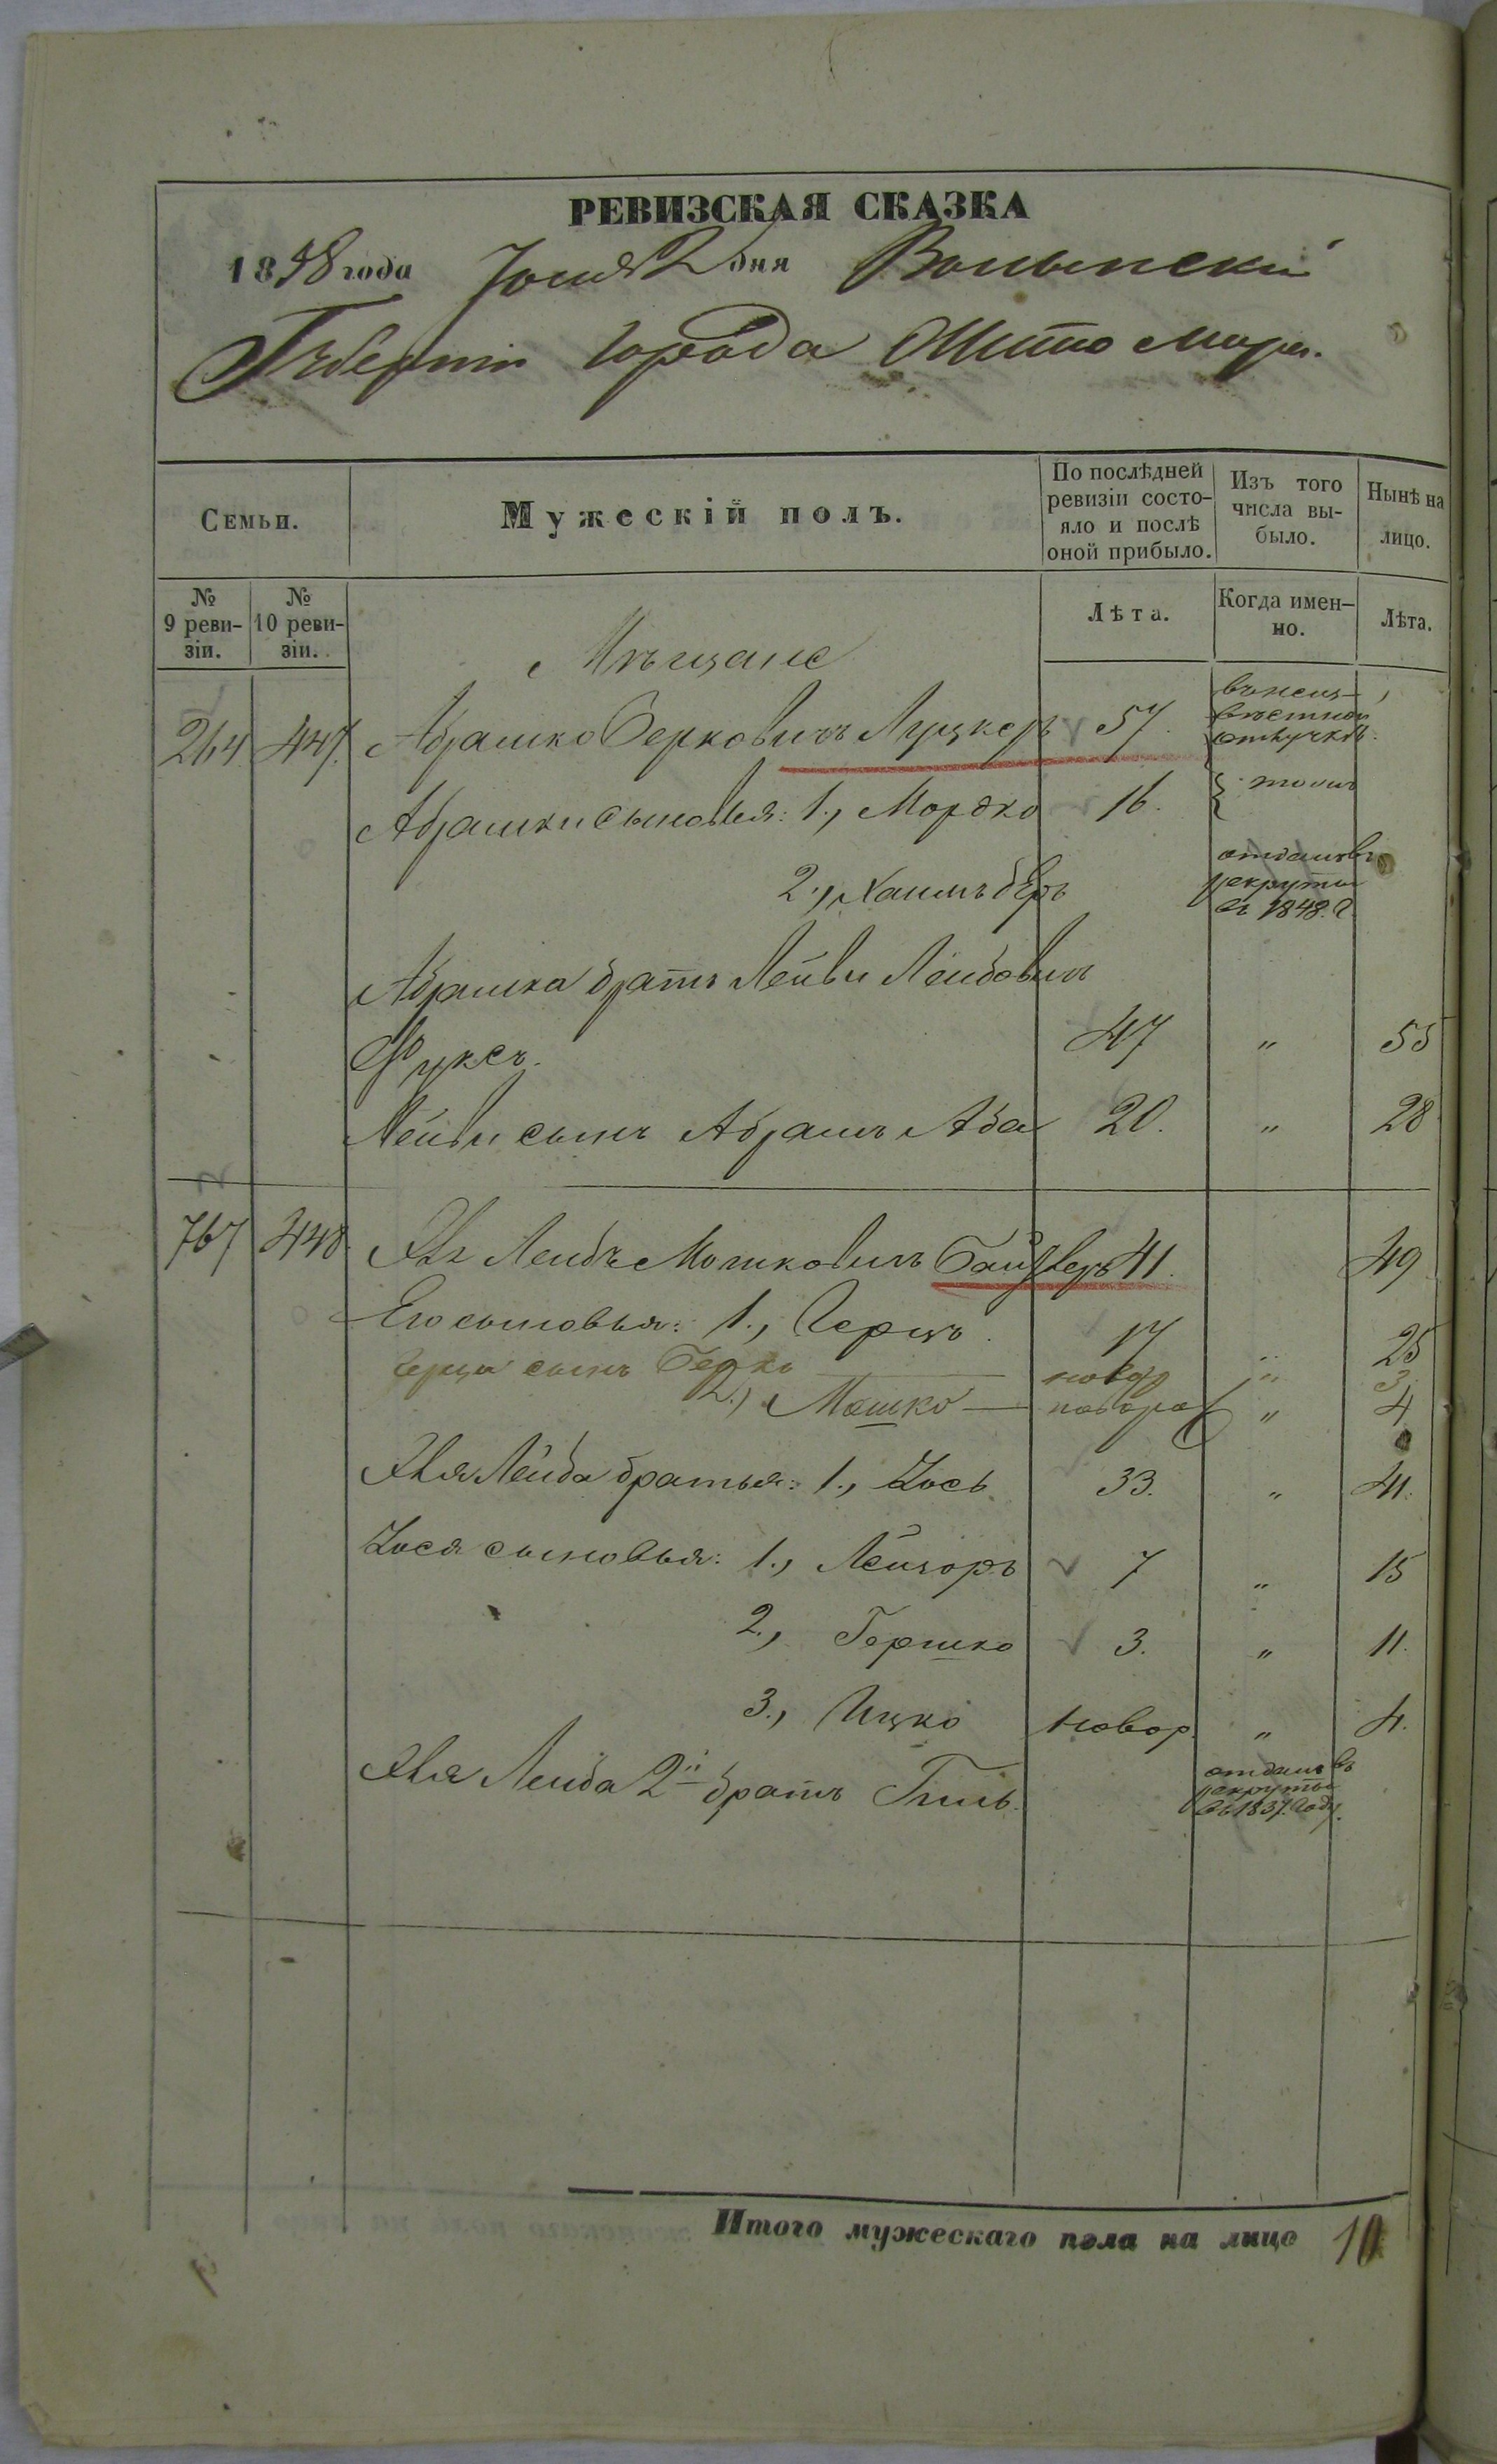 РЕВИЗСКАЯ СКАЗКА
1858 года Іюня 2 дня Волынской
Губерніи города Житомира.
Семьи.
Мужескій полъ.
По послѣдней ревизіи состо-
яло и послѣ
оной прибыло.
Изъ того
числа вы-
было.
Нынѣ на
лицо.
№
9 реви-
зіи.
№
10 реви-
зіи.
Лѣта.
Когда имен-
но.
Лѣта.
Мѣщане
264. 447. Абрашко Берковичъ Луцкеръ 57. въ неиз-
вѣстной
отлучкѣ.
Абрашки сыновья: 1., Мордко 16. тожъ
2., Хаимъ Беръ отданъ въ
рекруты
въ 1848. г.
Абрашка братъ Лейви Лейбовичъ
Фуксъ. 47 " 55
Лейви сынъ Абрамъ Аба 20. " 28
767 448 Лейбъ Мошковичъ 41. 49
Его сыновья: 1., Герцъ. 17 " 25
Герца сынъ Берко новор " 3.
2., Мошко — новорож " 4
Лейба братья: 1., Зось 33. " 41.
Зося сыновья: 1., Лейзоръ 7 " 15
2., Гершко 3. " 11.
3., Ицко новор. " 4.
Лейба 2й братъ отданъ въ
рекруты
въ 1837. году.
Итого мужескаго пола на лицо 10